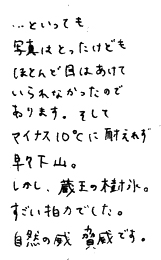 …といっても
写真はとったけども
ほとんど目はあけて
いられなかったので
あります。そして
マイナス10℃に耐えれず
早々下山。
しかし、蔵王の樹氷。
すごい拍力でした。
自然の威 賛威です。